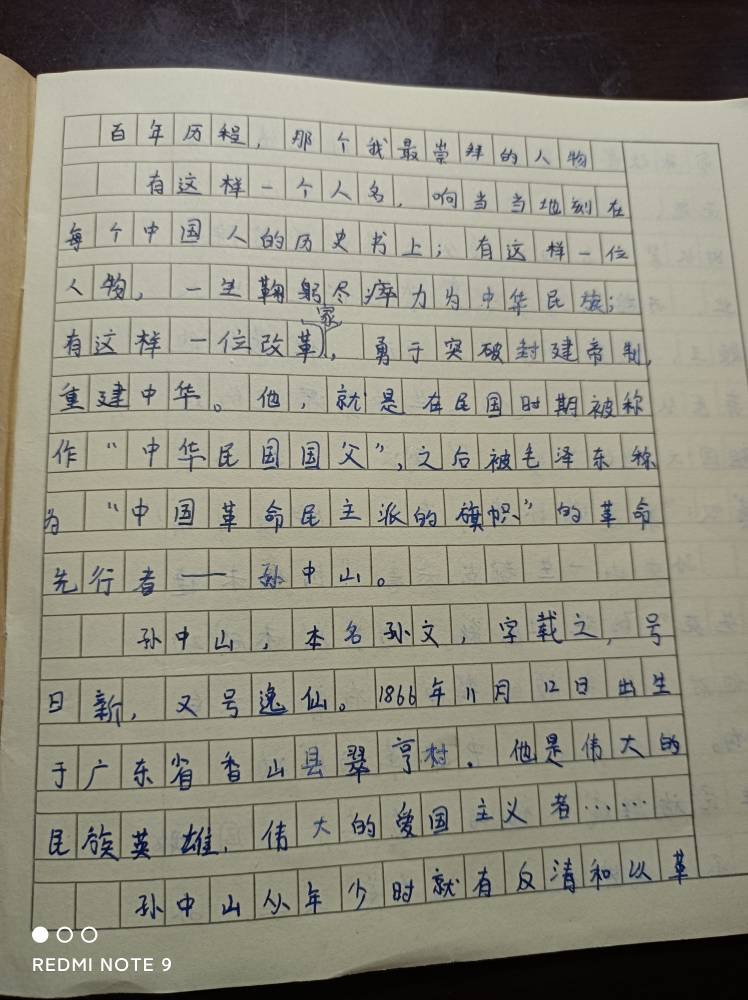 百年历程，那个我最崇拜的人物
有这样一个人名，响当当地刻在
每个中国人的历史书上；有这样一位
人物，一生鞠躬尽瘁力为中华民族；
有这样一位改革家，勇于突破封建帝制，
重建中华。他，就是在民国时期被称
作“中华民国国父”，之后被毛泽东称
为“中国革命民主派的旗帜”的革命
先行者——孙中山。
孙中山，本名孙文，字载之，号
日新，又号逸仙。1866年11月12日出生
于广东省香山县翠亨村。他是伟大的
民族英雄，伟大的爱国主义者……
孙中山从年少时就有反清和以革
REDMI NOTE 9